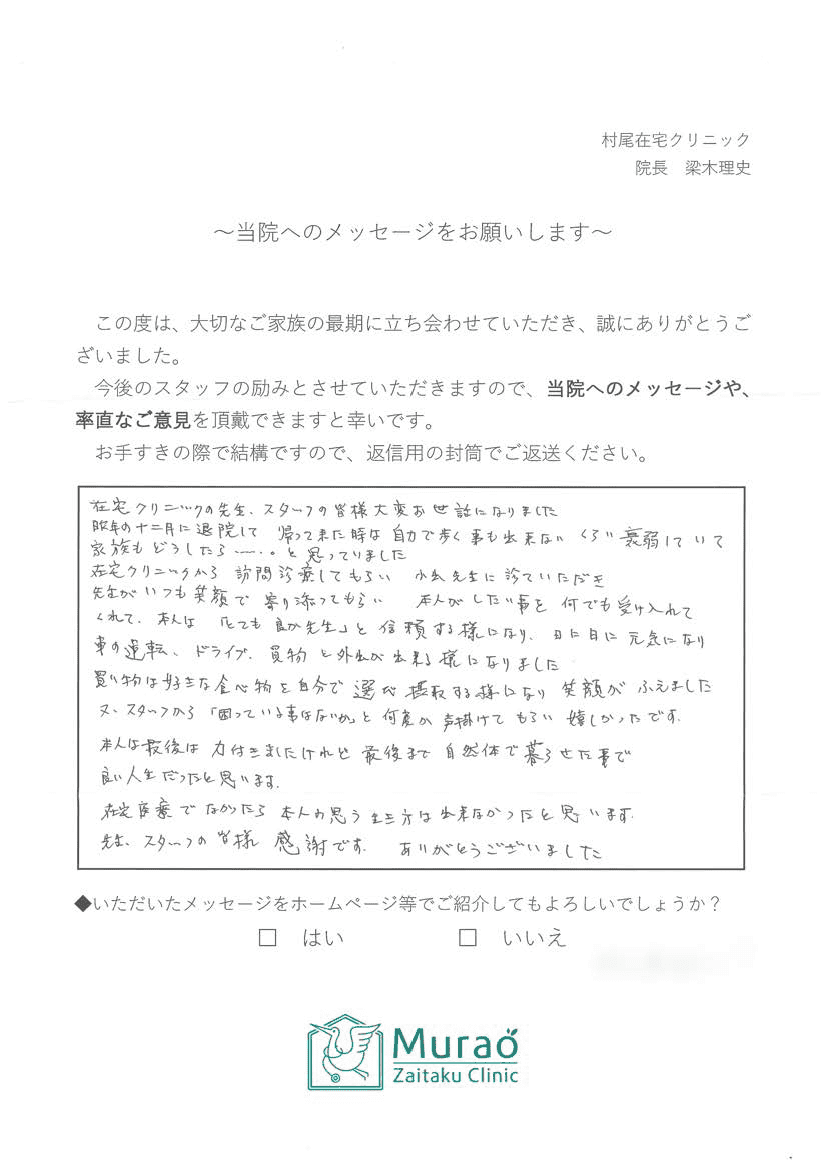 村尾在宅クリニック
院長　梁木理史
～当院へのメッセージをお願いします～
この度は、大切なご家族の最期に立ち会わせていただき、誠にありがとうご
ざいました。
今後のスタッフの励みとさせていただきますので、当院へのメッセージや、
率直なご意見を頂戴できますと幸いです。
お手すきの際で結構ですので、返信用の封筒でご返送ください。
在宅クリニックの先生、スタッフの皆様大変お世話になりました
昨年の十二月に退院して　帰って来た時は自力で歩く事も出来ないくらい衰弱していて
家族もどうしたら……。と思っていました
在宅クリニックから訪問診療してもらい　先生に診ていただき
先生がいつも笑顔で寄り添ってもらい　本人がしたい事を何でも受け入れて
くれて、本人は「とても良か先生」と信頼する様になり、日に日に元気になり
車の運転、ドライブ、買物と外出が出来る様になりました
買い物は好きな食べ物を自分で選び摂取する様になり笑顔がふえました
又、スタッフから「困っている事はないか」と何度か声掛けてもらい嬉しかったです。
本人は最後は力付きましたけれど最後まで自然体で暮らせた事で
良い人生だったと思います。
在宅医療でなかったら本人の思う生き方は出来なかったと思います。
先生、スタッフの皆様感謝です。ありがとうございました
◆いただいたメッセージをホームページ等でご紹介してもよろしいでしょうか？
□　はい　□　いいえ
Murao
Zaitaku Clinic